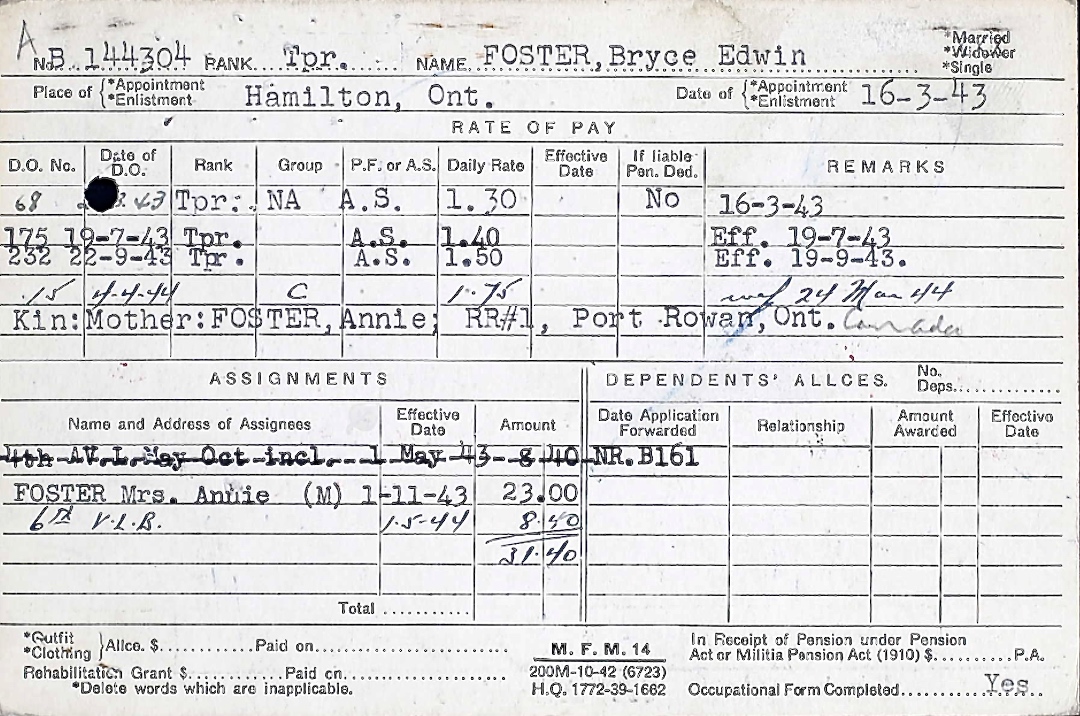 A
No. B 144304 RANK Tpr. NAME FOSTER, Bryce Edwin *Married *Widower *Single
Place of {*Appointment *Enlistment Hamilton, Ont. Date of {*Appointment *Enlistment 16-3-43
RATE OF PAY
D.O. No. Date of D.O. Rank Group P.F. or A.S. Daily Rate Effective Date If liable Pen. Ded. REMARKS
68 43 Tpr. NA A.S. 1.30 No 16-3-43
175 19-7-43 Tpr. A.S. 1.40 Eff. 19-7-43
232 22-9-43 Tpr. A.S. 1.50 Eff. 19-9-43.
15 4-4-44 C 1.75 wef 24 Mar 44
Kin: Mother: FOSTER, Annie; RR#1, Port Rowan, Ont. Canada
ASSIGNMENTS DEPENDENTS' ALLCES. No. Deps.
Name and Address of Assignees Effective Date Amount Date Application Forwarded Relationship Amount Awarded Effective Date
4th AV.L. May Oct incl. 1 May 43 8 40 NR.B161
FOSTER Mrs. Annie (M) 1-11-43 23.00
6th V.L.B. 1.5-44 8.40
31.40
Total
*Outfit *Clothing } Allce. $ Paid on
Rehabilitation Grant $ Paid on
*Delete words which are inapplicable.
M. F. M. 14
200M-10-42 (6723)
H.Q. 1772-39-1662
In Receipt of Pension under Pension
Act or Militia Pension Act (1910) $ P.A.
Occupational Form Completed Yes